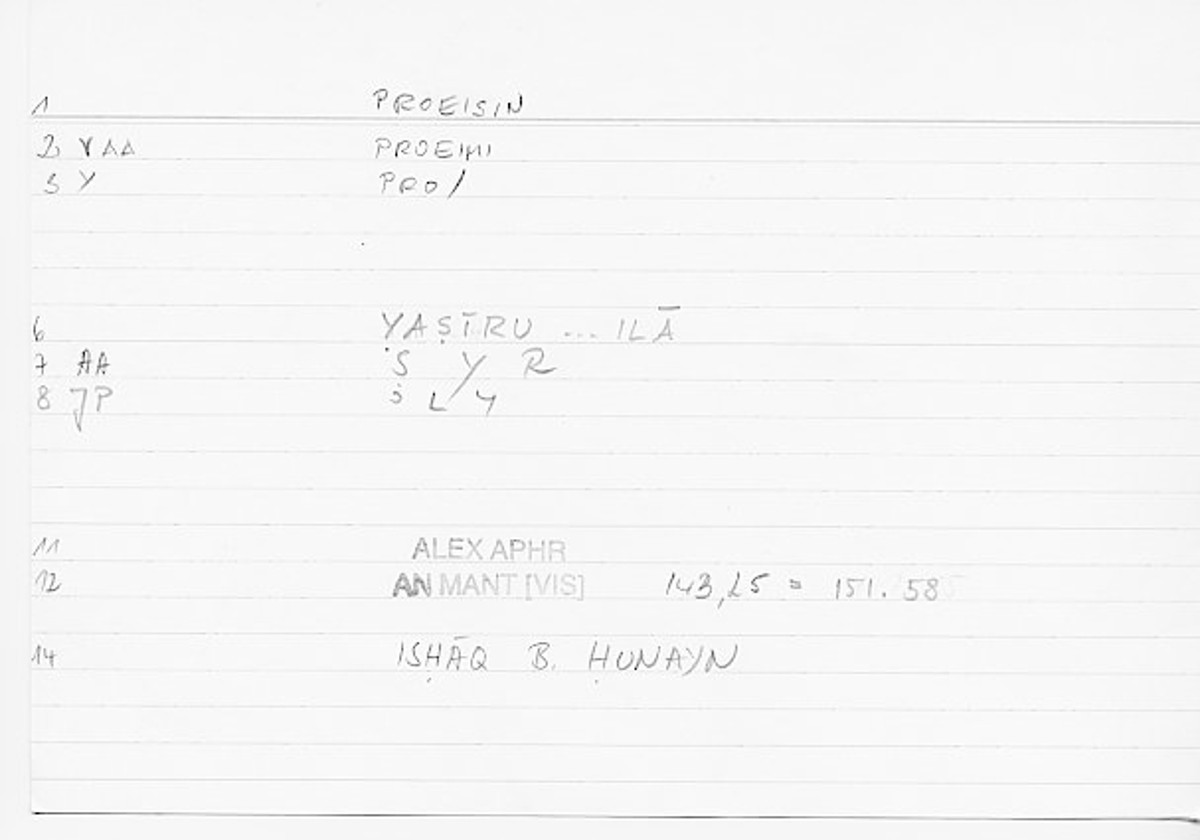 1 PROEISIN
2 VAA PROEIMI
3 Y PRO/
6 YAṢĪRU ... ILĀ
7 AA Ṣ Y R
8 JP ʾ L Y
11 ALEX APHR
12 AN MANT [VIS] 143,25 = 151.58
14 ISḤĀQ B. ḤUNAYN